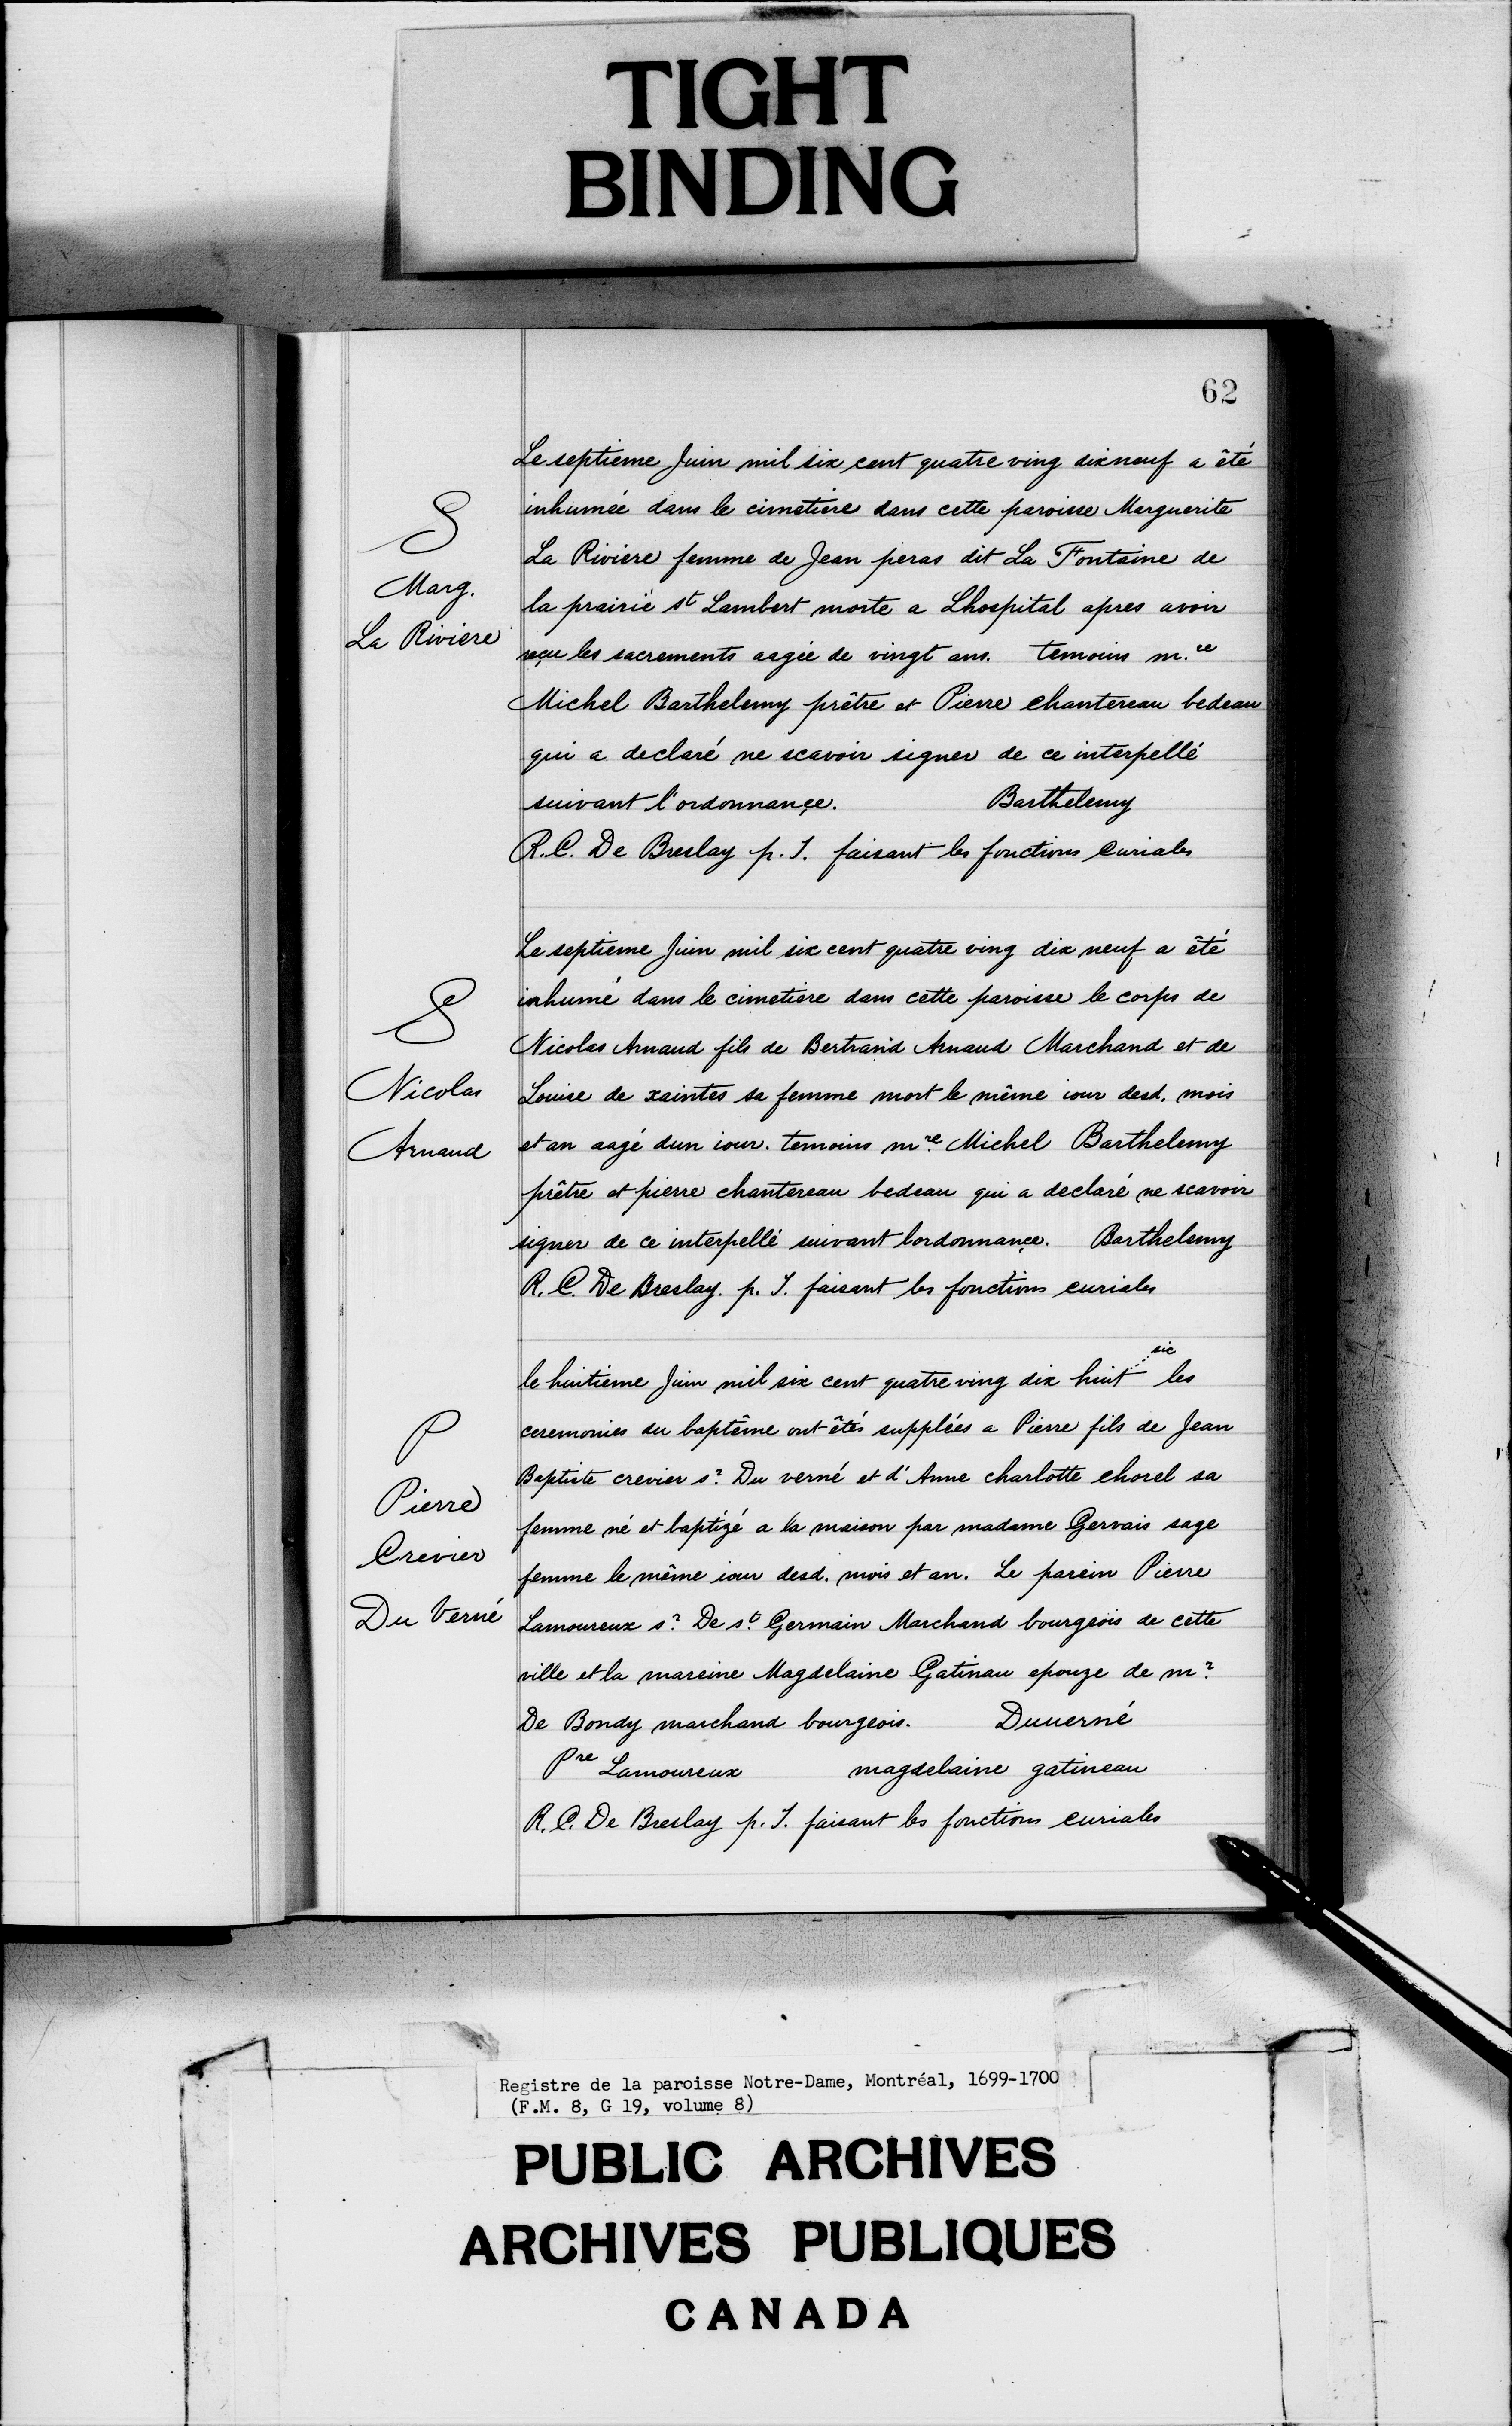 TIGHT
BINDING
62
Le septieme Juin mil six cent quatre ving dixneuf a êté
inhumée dans le cimetiere dans cette paroisse Marguerite
La Riviere femme de Jean peras dit La Fontaine de
la prairie st Lambert morte a Lhospital apres avoir
reçu les sacrements aagée de vingt ans. temoins m.re
Michel Barthelemy prêtre et Pierre chantereau bedeau
qui a declaré ne scavoir signer de ce interpellé
suivant l'ordonnançe. Barthelemy
R.C. De Breslay p.J. faisant les fonctions Curiales
S
Marg.
La Riviere
Le septieme Juin mil six cent quatre ving dix neuf a êté
inhumé dans le cimetiere dans cette paroisse le corps de
Nicolas Arnaud fils de Bertrand Arnaud Marchand et de
Louise de xaintes sa femme mort le même iour desd. mois
et an aagé dun iour. temoins mre. Michel Barthelemy
prêtre et pierre chantereau bedeau qui a declaré ne scavoir
signer de ce interpellé suivant lordonnançe. Barthelemy
R.C. De Breslay. p.J. faisant les fonctions curiales
S
Nicolas
Arnaud
sic
le huitieme Juin mil six cent quatre ving dix huit les
ceremonies du baptême ont êtés supplées a Pierre fils de Jean
Baptiste crevier sr. Du verné et d'Anne charlotte chorel sa
femme né et baptizé a la maison par madame Gervais sage
femme le même iour desd. mois et an. Le parein Pierre
Lamoureux sr. De st. Germain Marchand bourgeois de cette
ville et la mareine Magdelaine Gatinau epouze de mr.
De Bondy marchand bourgeois. Duuerné
Pre Lamoureux magdelaine gatineau
R.C. De Breslay p.J. faisant les fonctions curiales
P
Pierre
Crevier
Du Verné
Registre de la paroisse Notre-Dame, Montréal, 1699-1700
(F.M. 8, G 19, volume 8)
PUBLIC ARCHIVES
ARCHIVES PUBLIQUES
CANADA